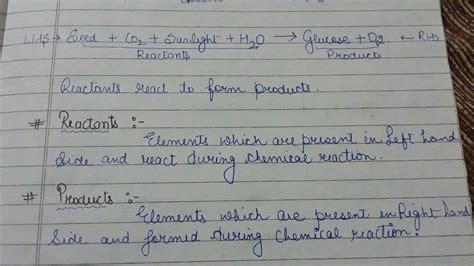 LHS → Seed + CO2 + Sunlight + H2O → Glucose + O2. ← RHS
Reactants Products
Reactants react to form products.
# Reactants :-
Elements which are present in Left Hand
Side and react during chemical reaction.
# Products :-
Elements which are present in Right hand
Side and formed during Chemical reaction.